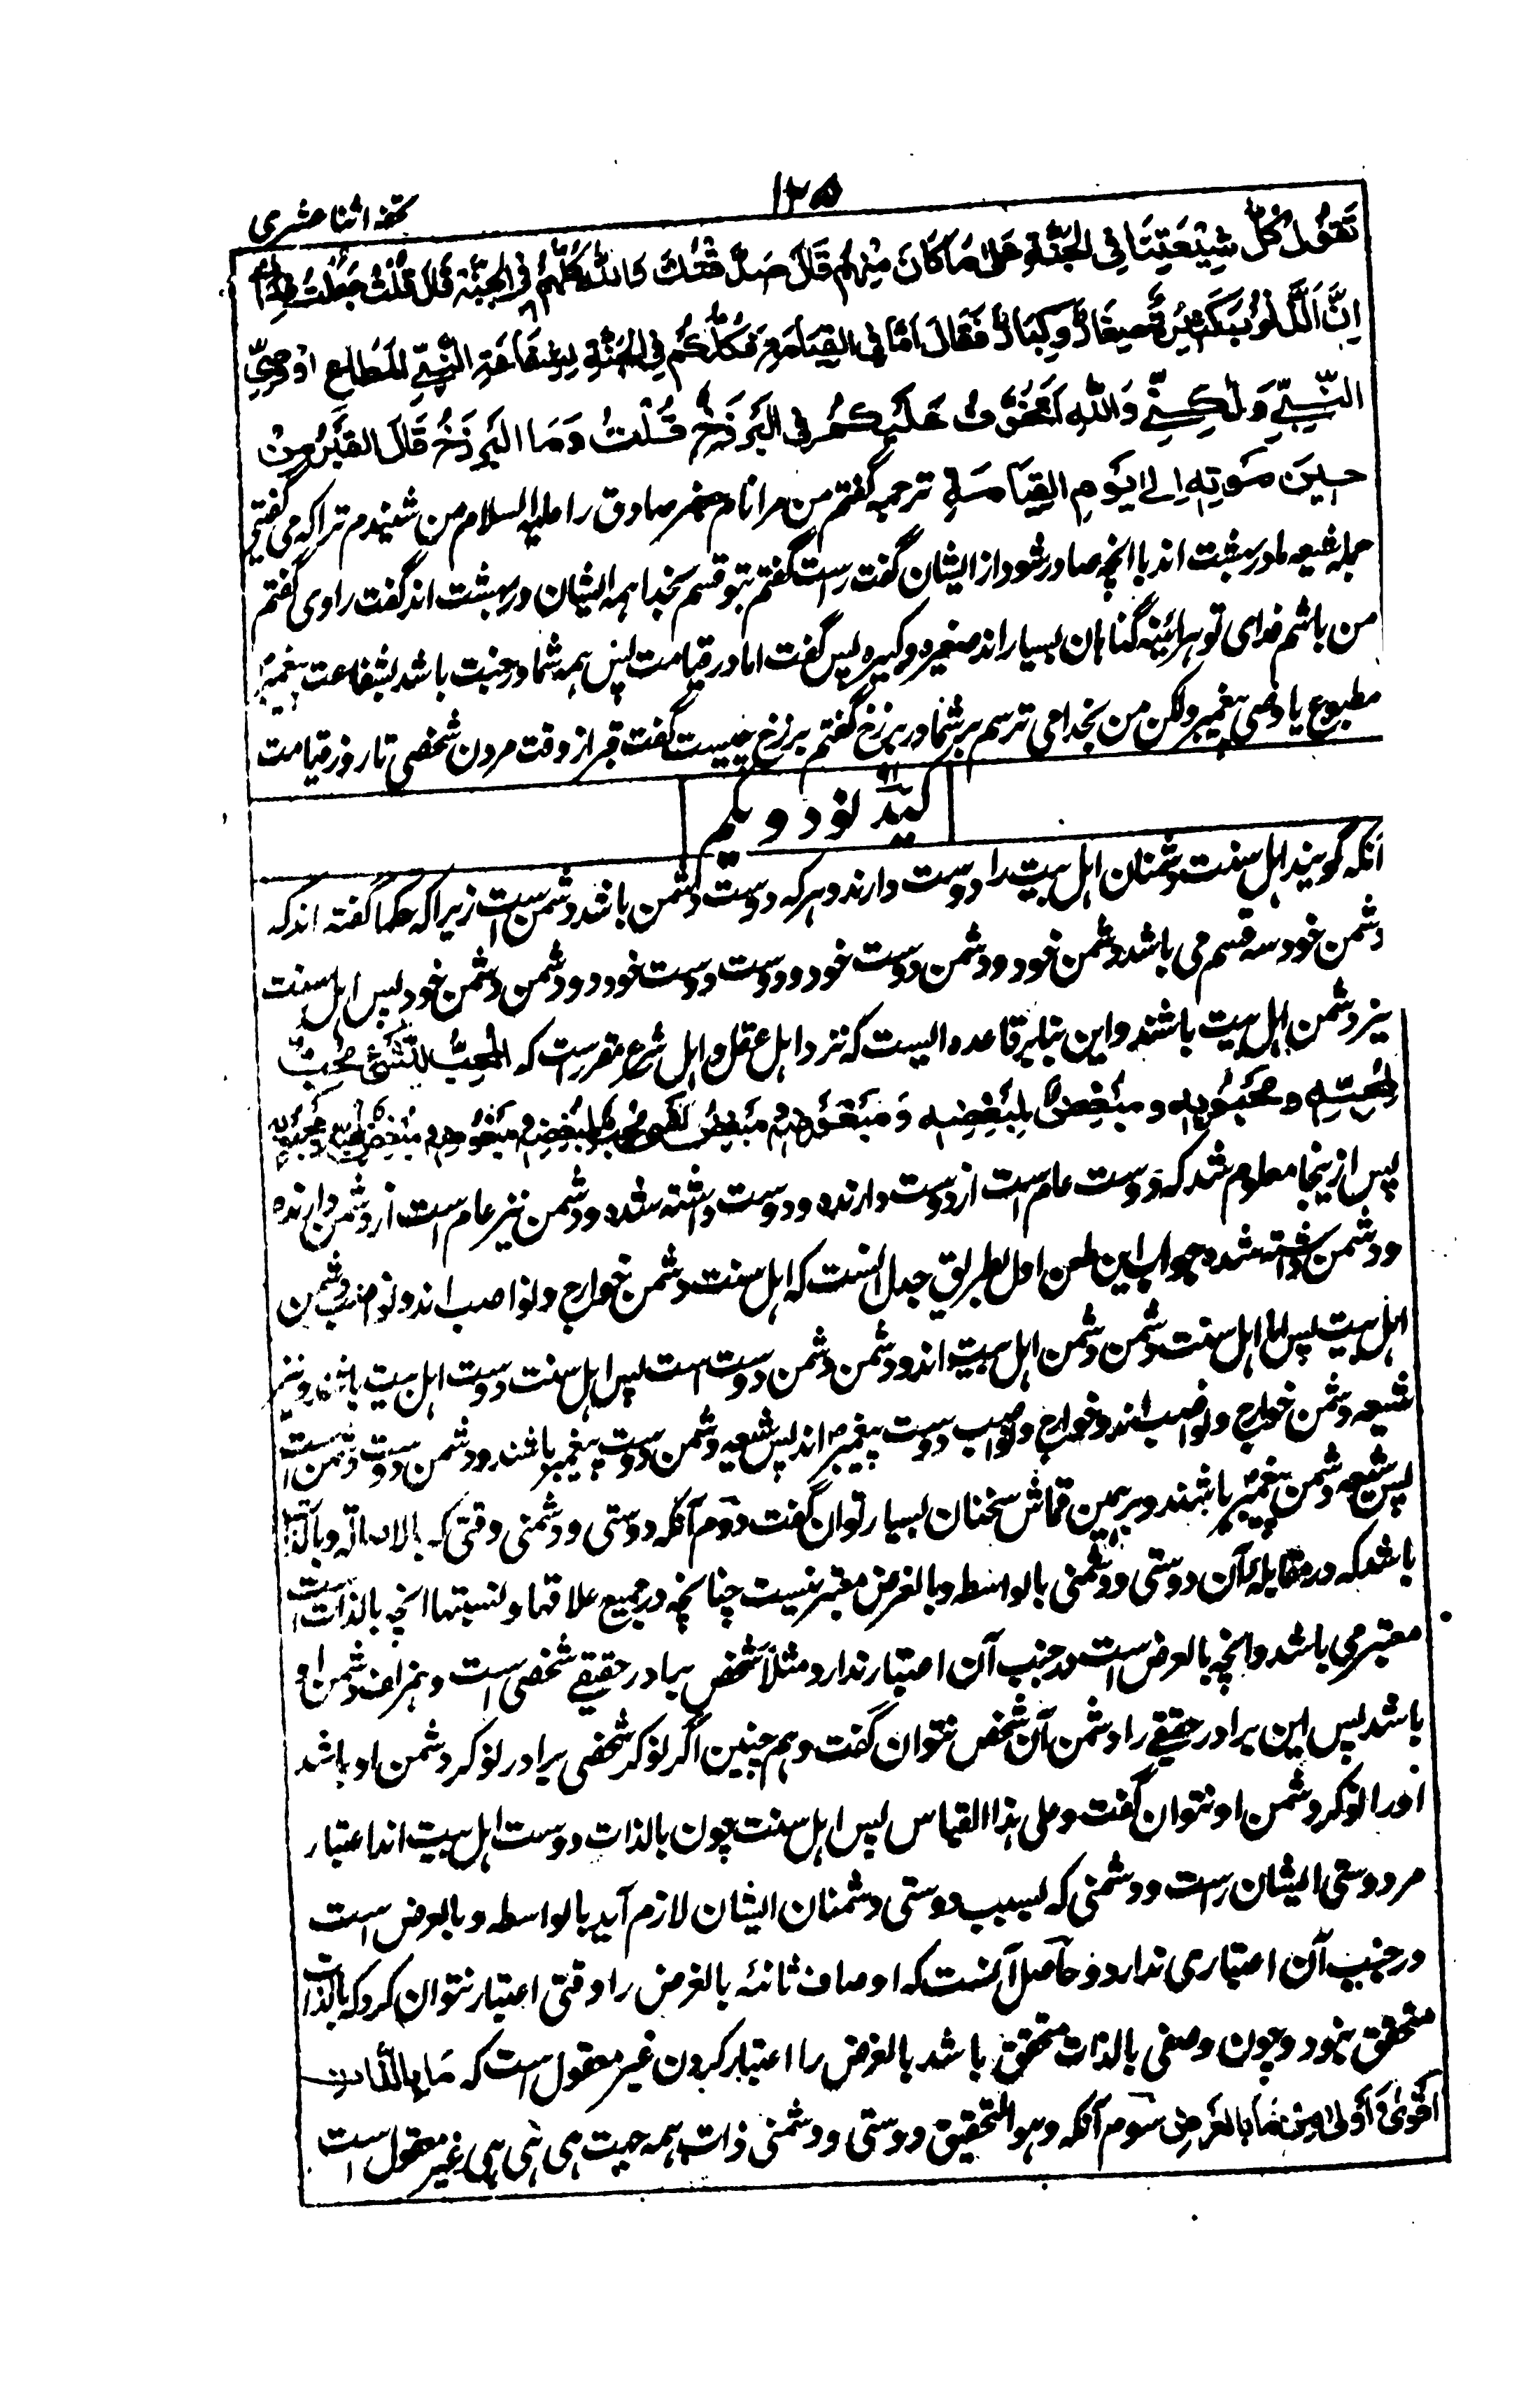 ۱۳۵
تحفه اثنا عشری
تَقُولُ كُلُّ شِيْعَتِنَا فِي الْجَنَّةِ عَلَى مَا كَانَ مِنْهُمْ قَالَ صَدَّقْتُكَ كُلُّهُمْ وَاللهِ فِي الْجَنَّة قَالَ قُلْتُ جُعِلْتُ فِدَاكَ
اِنَّ الذُّنُوْبَ كَثِيْرَةٌ صِغَارٌ وَكِبَارٌ فَقَالَ اَمَّا فِي الْقِيَامَةِ فَكُلُّكُمْ فِي الْجَنَّةِ بِشَفَاعَةِ النَّبِيِّ الْمُطَاعِ اَوْ وَصِيِّ
النَّبِيِّ وَلٰكِنِّي وَاللهِ اَتَخَوَّفُ عَلَيْكُمْ فِي الْبَرْزَخِ قُلْتُ وَمَا الْبَرْزَخُ قَالَ الْقَبْرُ مِنْ
حِيْنَ مَوْتِهِ اِلٰى يَوْمِ الْقِيَامَةِ ترجمه گفتم من مر امام جعفر صادق را علیه السلام من شنیدم ترا که می گفتی
جمله شیعه ما در بهشت اند با انچه صادر شود از ایشان گفت راست گفتم بتو قسم بخدا همه ایشان در بهشت اند گفت راوی گفتم
من باشم فدای تو هر آئینه گناهان بسیار اند صغیره و کبیره پس گفت اما در قیامت پس همه شما در جنت باشد بشفاعت پیغمبر
مطبوع یا وصی پیغمبر ولکن من بخدا می ترسم بر شما در برزخ گفتم برزخ چیست گفت قبر از وقت مردن شخصی تا روز قیامت
کید نود و یکم
آنکه گویند اهل سنت دشمنان اهل بیت را دوست دارند و هر که دوست دشمن باشد دشمن است زیرا که حکما گفته اند که
دشمن خود سه قسم می باشد دشمن خود و دشمن دوست خود و دوست دشمن خود پس اهل سنت
نیز دشمن اهل بیت باشند و این بنابر قاعده ایست که نزد اهل عقل و اهل شرع مقرر است که المُحِبُّ لِشَيْءٍ مُحِبٌّ
لِمُحِبِّهِ وَمَحْبُوبِهِ وَمُبْغِضٌ لِمُبْغِضِهِ وَمَبْغُوْضِهِ
پس ازینجا معلوم شد که دوست عام است از دوست دارنده و دوست داشته شده و دشمن نیز عام است از دشمن دارنده
و دشمن داشته شده جواب این طعن اول بطریق جدل آنست که اهل سنت دشمن خوارج و نواصب اند و نواصب دشمن
اهل بیت پس اهل سنت دشمن دشمن اهل بیت اند و دشمن دشمن دوست است پس اهل سنت دوست اهل بیت باشند و نیز
شیعه دشمن خوارج و نواصب اند و خوارج و نواصب دوست پیغمبر اند پس شیعه دشمن دوست پیغمبر باشند و دشمن دوست دشمن است
پس شیعه دشمن پیغمبر باشند و برهمین قماش سخنان بسیار توان گفت دوم آنکه دوستی و دشمنی وقتی که بالاصالة و بالذات
باشد که در مقابله آن دوستی و دشمنی بالواسطه و بالعرض معتبر نیست چنانچه در جمیع علاقها و نسبتها انچه بالذات است
معتبر می باشد و انچه بالعرض است در جنب آن اعتبار ندارد مثلاً شخصی برادر حقیقی شخصی است و دشمن او
باشد پس این برادر حقیقی را دشمن آن شخص نتوان گفت و هم چنین اگر نوکر شخصی برادر نوکر دشمن او باشد
او را نوکر دشمن او نتوان گفت و علی هذا القیاس پس اهل سنت چون بالذات دوست اهل بیت اند اعتبار
مر دوستی ایشان راست و دشمنی که بسبب دوستی دشمنان ایشان لازم آید بالواسطه و بالعرض است
در جنب آن اعتباری ندارد و حاصل آنست که اوصاف ثانیه بالعرض را وقتی اعتبار نتوان کرد که بالذات
متحقق نبود و چون وصفی بالذات متحقق باشد بالعرض را اعتبار کردن غیر معقول است که مَا بِالذَّاتِ
اَقْوٰى وَاَوْلٰى مِنْ مَا بِالْعَرَضِ سوم آنکه و هو التحقیق دوستی و دشمنی ذات همه حیث هی هی غیر معقول است